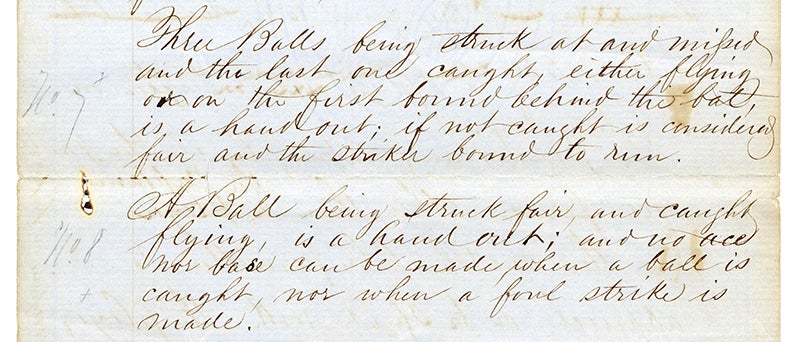 Three Balls being struck at and missed
and the last one caught, either flying
or on the first bound behind the bat,
is, a hand out; if not caught is considered
fair and the striker bound to run.
No. 7
A Ball being struck fair, and caught
flying, is a hand out; and no ace
nor base can be made, when a ball is
caught, nor when a foul strike is
made.
No 8